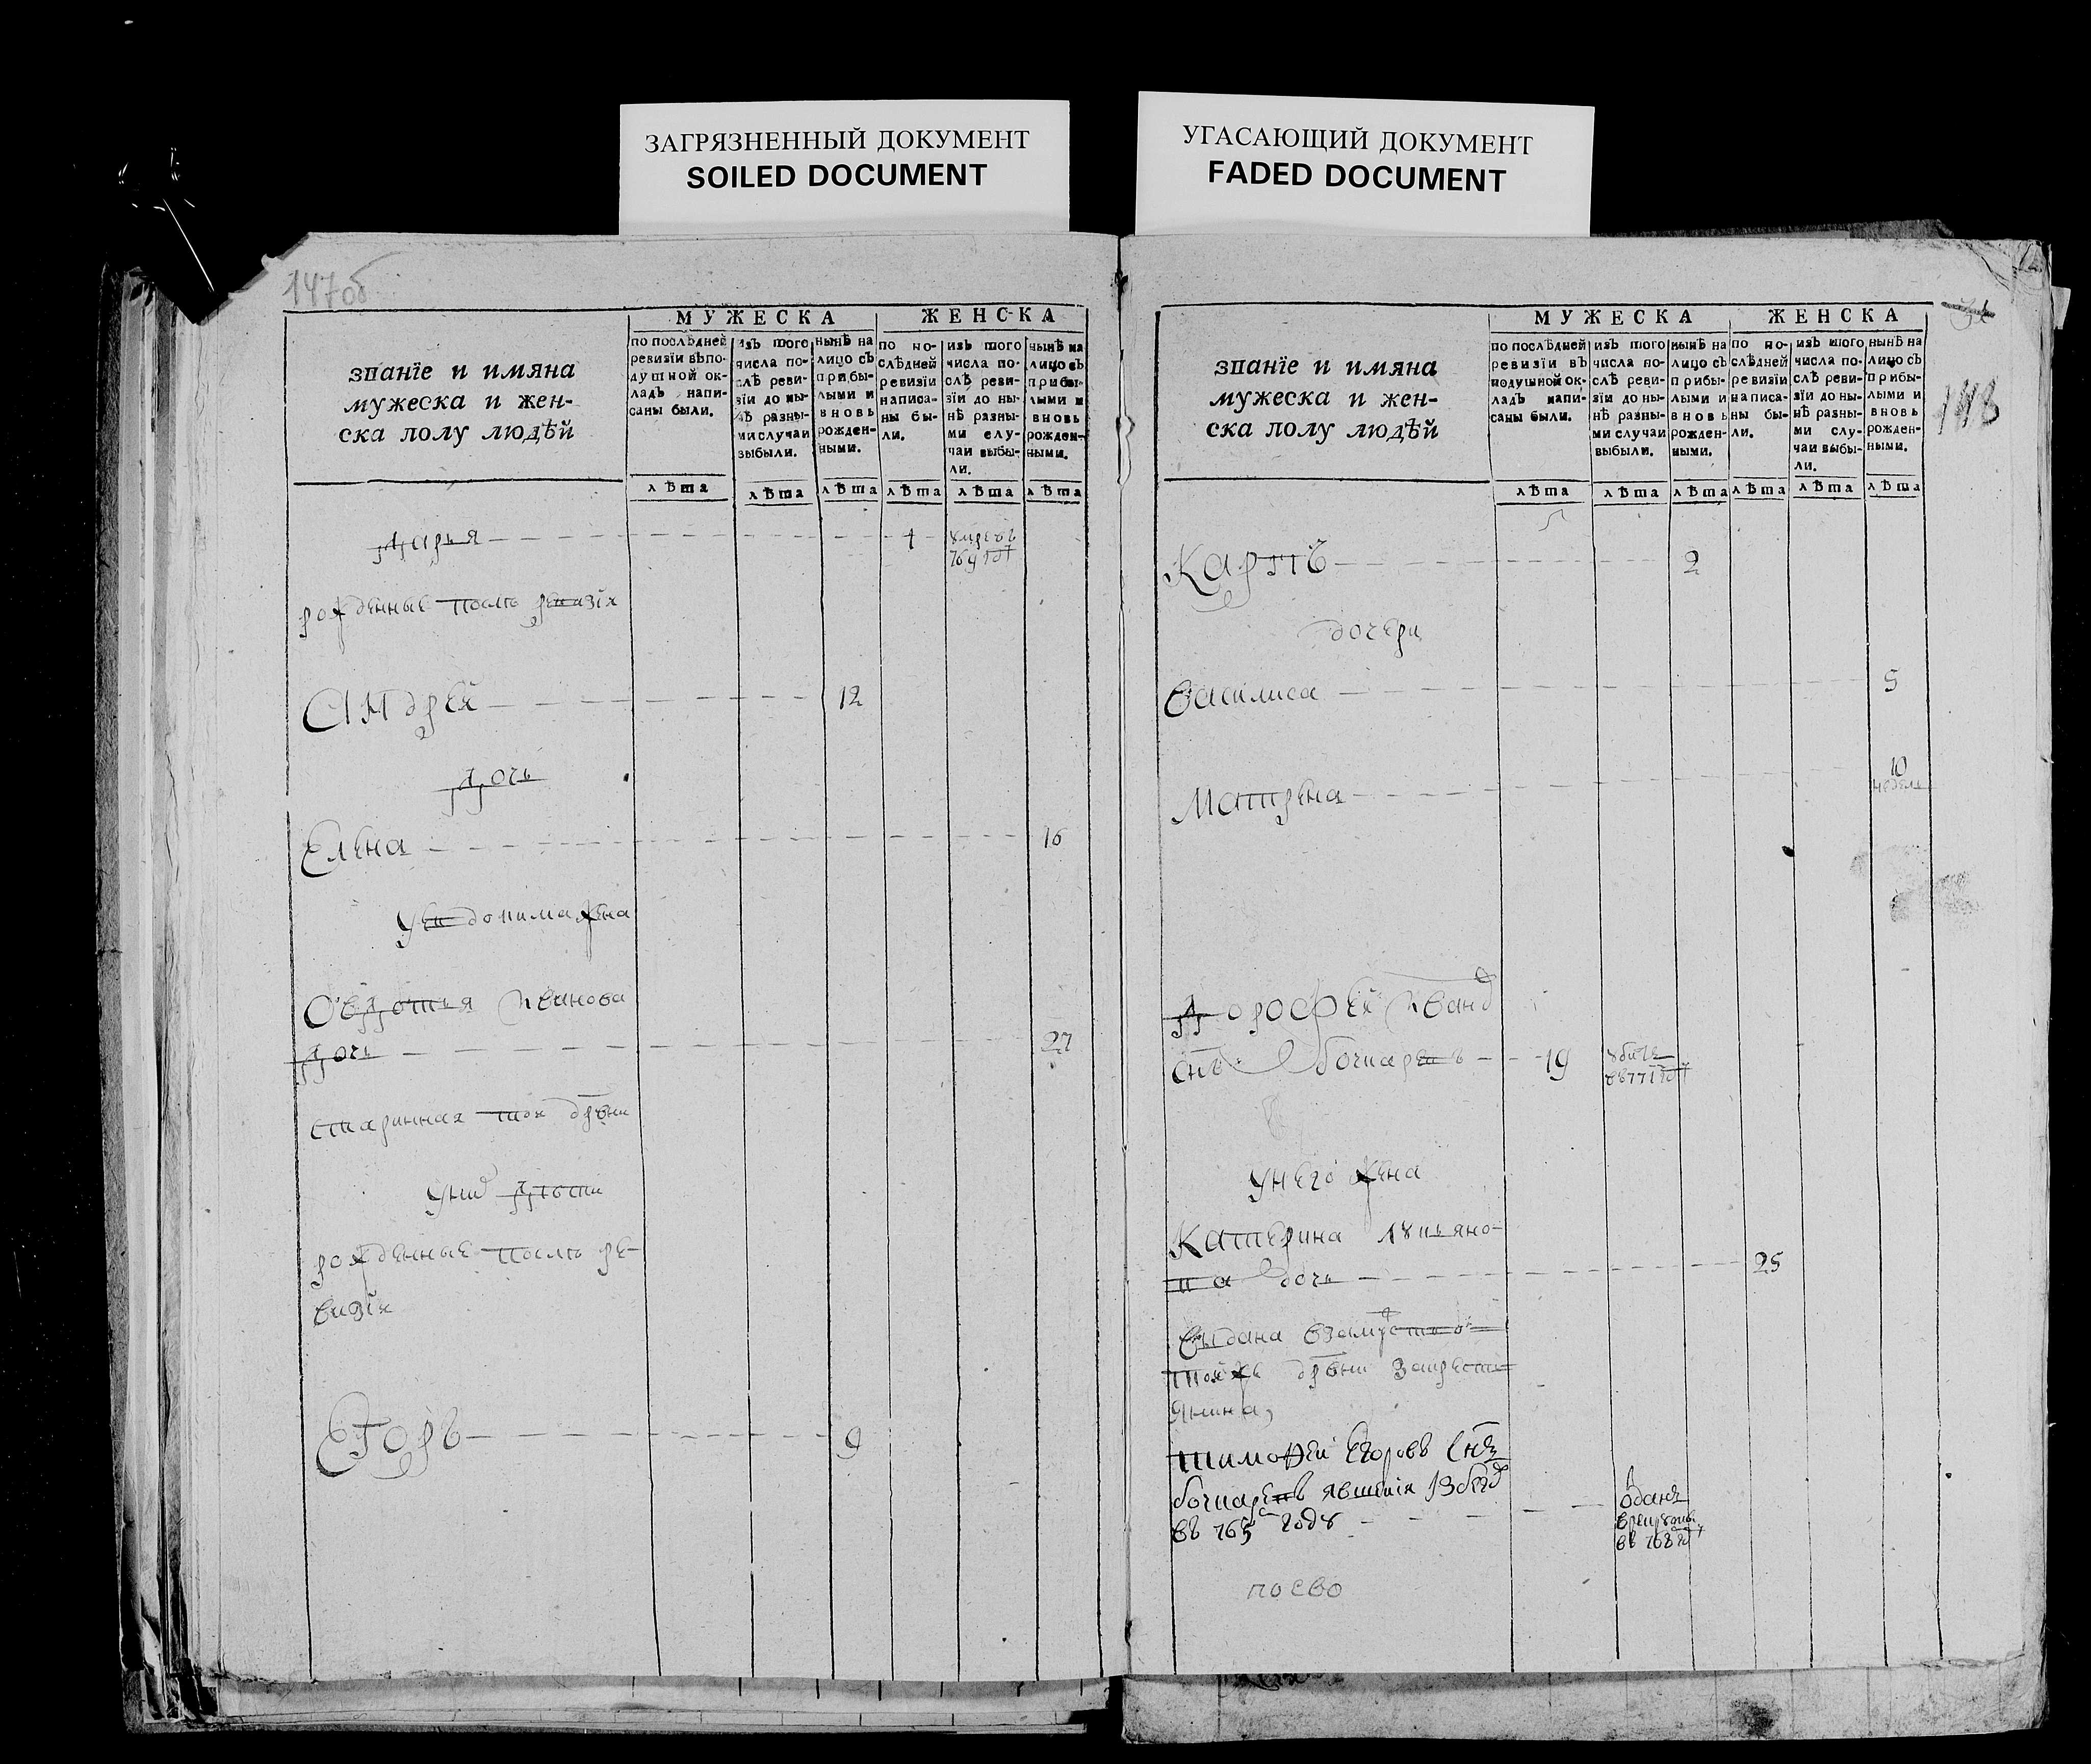 ЗАГРЯЗНЕННЫЙ ДОКУМЕНТ
SOILED DOCUMENT
УГАСАЮЩИЙ ДОКУМЕНТ
FADED DOCUMENT
147об
званїе и имяна
мужеска и жен-
ска полу людѣй
МУЖЕСКА
ЖЕНСКА
по послѣдней
ревизїи въпо-
душной ок-
ладъ напи-
саны были.
изъ того
числа по-
слѣ реви-
зїи до ны-
нѣ разны-
ми случаи
выбыли.
нынѣ на
лицо съ
прибы-
лыми и
вновь
рожден-
ными.
по по-
слѣдней
ревизїи
написа-
ны бы-
ли.
изъ того
числа по-
слѣ реви-
зїи до ны-
нѣ разны-
ми слу-
чаи выбы-
ли.
нынѣ на
лицо съ
прибы-
лыми и
вновь
рожден-
ными.
лѣта лѣта лѣта лѣта лѣта лѣта
Дарья 1 умре въ
769 год
рожденные после ревизiи
Андрей 12
Дочь
Елена 16
у ево дойима жена
Овдотья Иванова
Дочь 27
старинная той дрвни
у них дѣти
рожденные после ре-
визiи
Егоръ 9
148
званїе и имяна
мужеска и жен-
ска полу людѣй
МУЖЕСКА
ЖЕНСКА
по послѣдней
ревизїи въ
подушной ок-
ладъ напи-
саны были.
изъ того
числа по-
слѣ реви-
зїи до ны-
нѣ разны-
ми случаи
выбыли.
нынѣ на
лицо съ
прибы-
лыми и
вновь
рожден-
ными.
по по-
слѣдней
ревизїи
написа-
ны бы-
ли.
изъ того
числа по-
слѣ реви-
зїи до ны-
нѣ разны-
ми слу-
чаи выбы-
ли.
нынѣ на
лицо съ
прибы-
лыми и
вновь
рожден-
ными.
лѣта лѣта лѣта лѣта лѣта лѣта
Карпъ 2
дочери
Василиса 5
Матрена 10
недель
Дорофей Иванов
снъ бочкаревъ 19 убитъ
въ 771 год
у него жена
Катерина лукьяно-
ва дочь 25
выдана взамуство
тойже дрвни за крестья-
янина,
тимофей Егоровъ снъ
бочкаревъ явшийся из бегов
въ 765 году отдан
в рекруты
въ 768 г
по ево